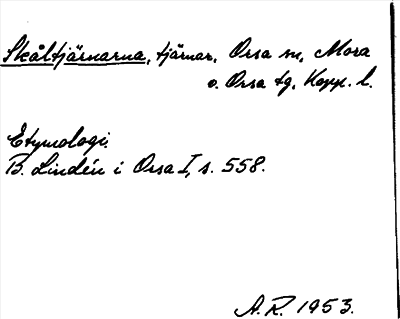 Skåltjärnarna, tjärnar, Orsa sn, Mora
o. Orsa tg, Kopp. l.
Etymologi.
B. Lindén i Orsa I, s. 558.
A.R. 1953.